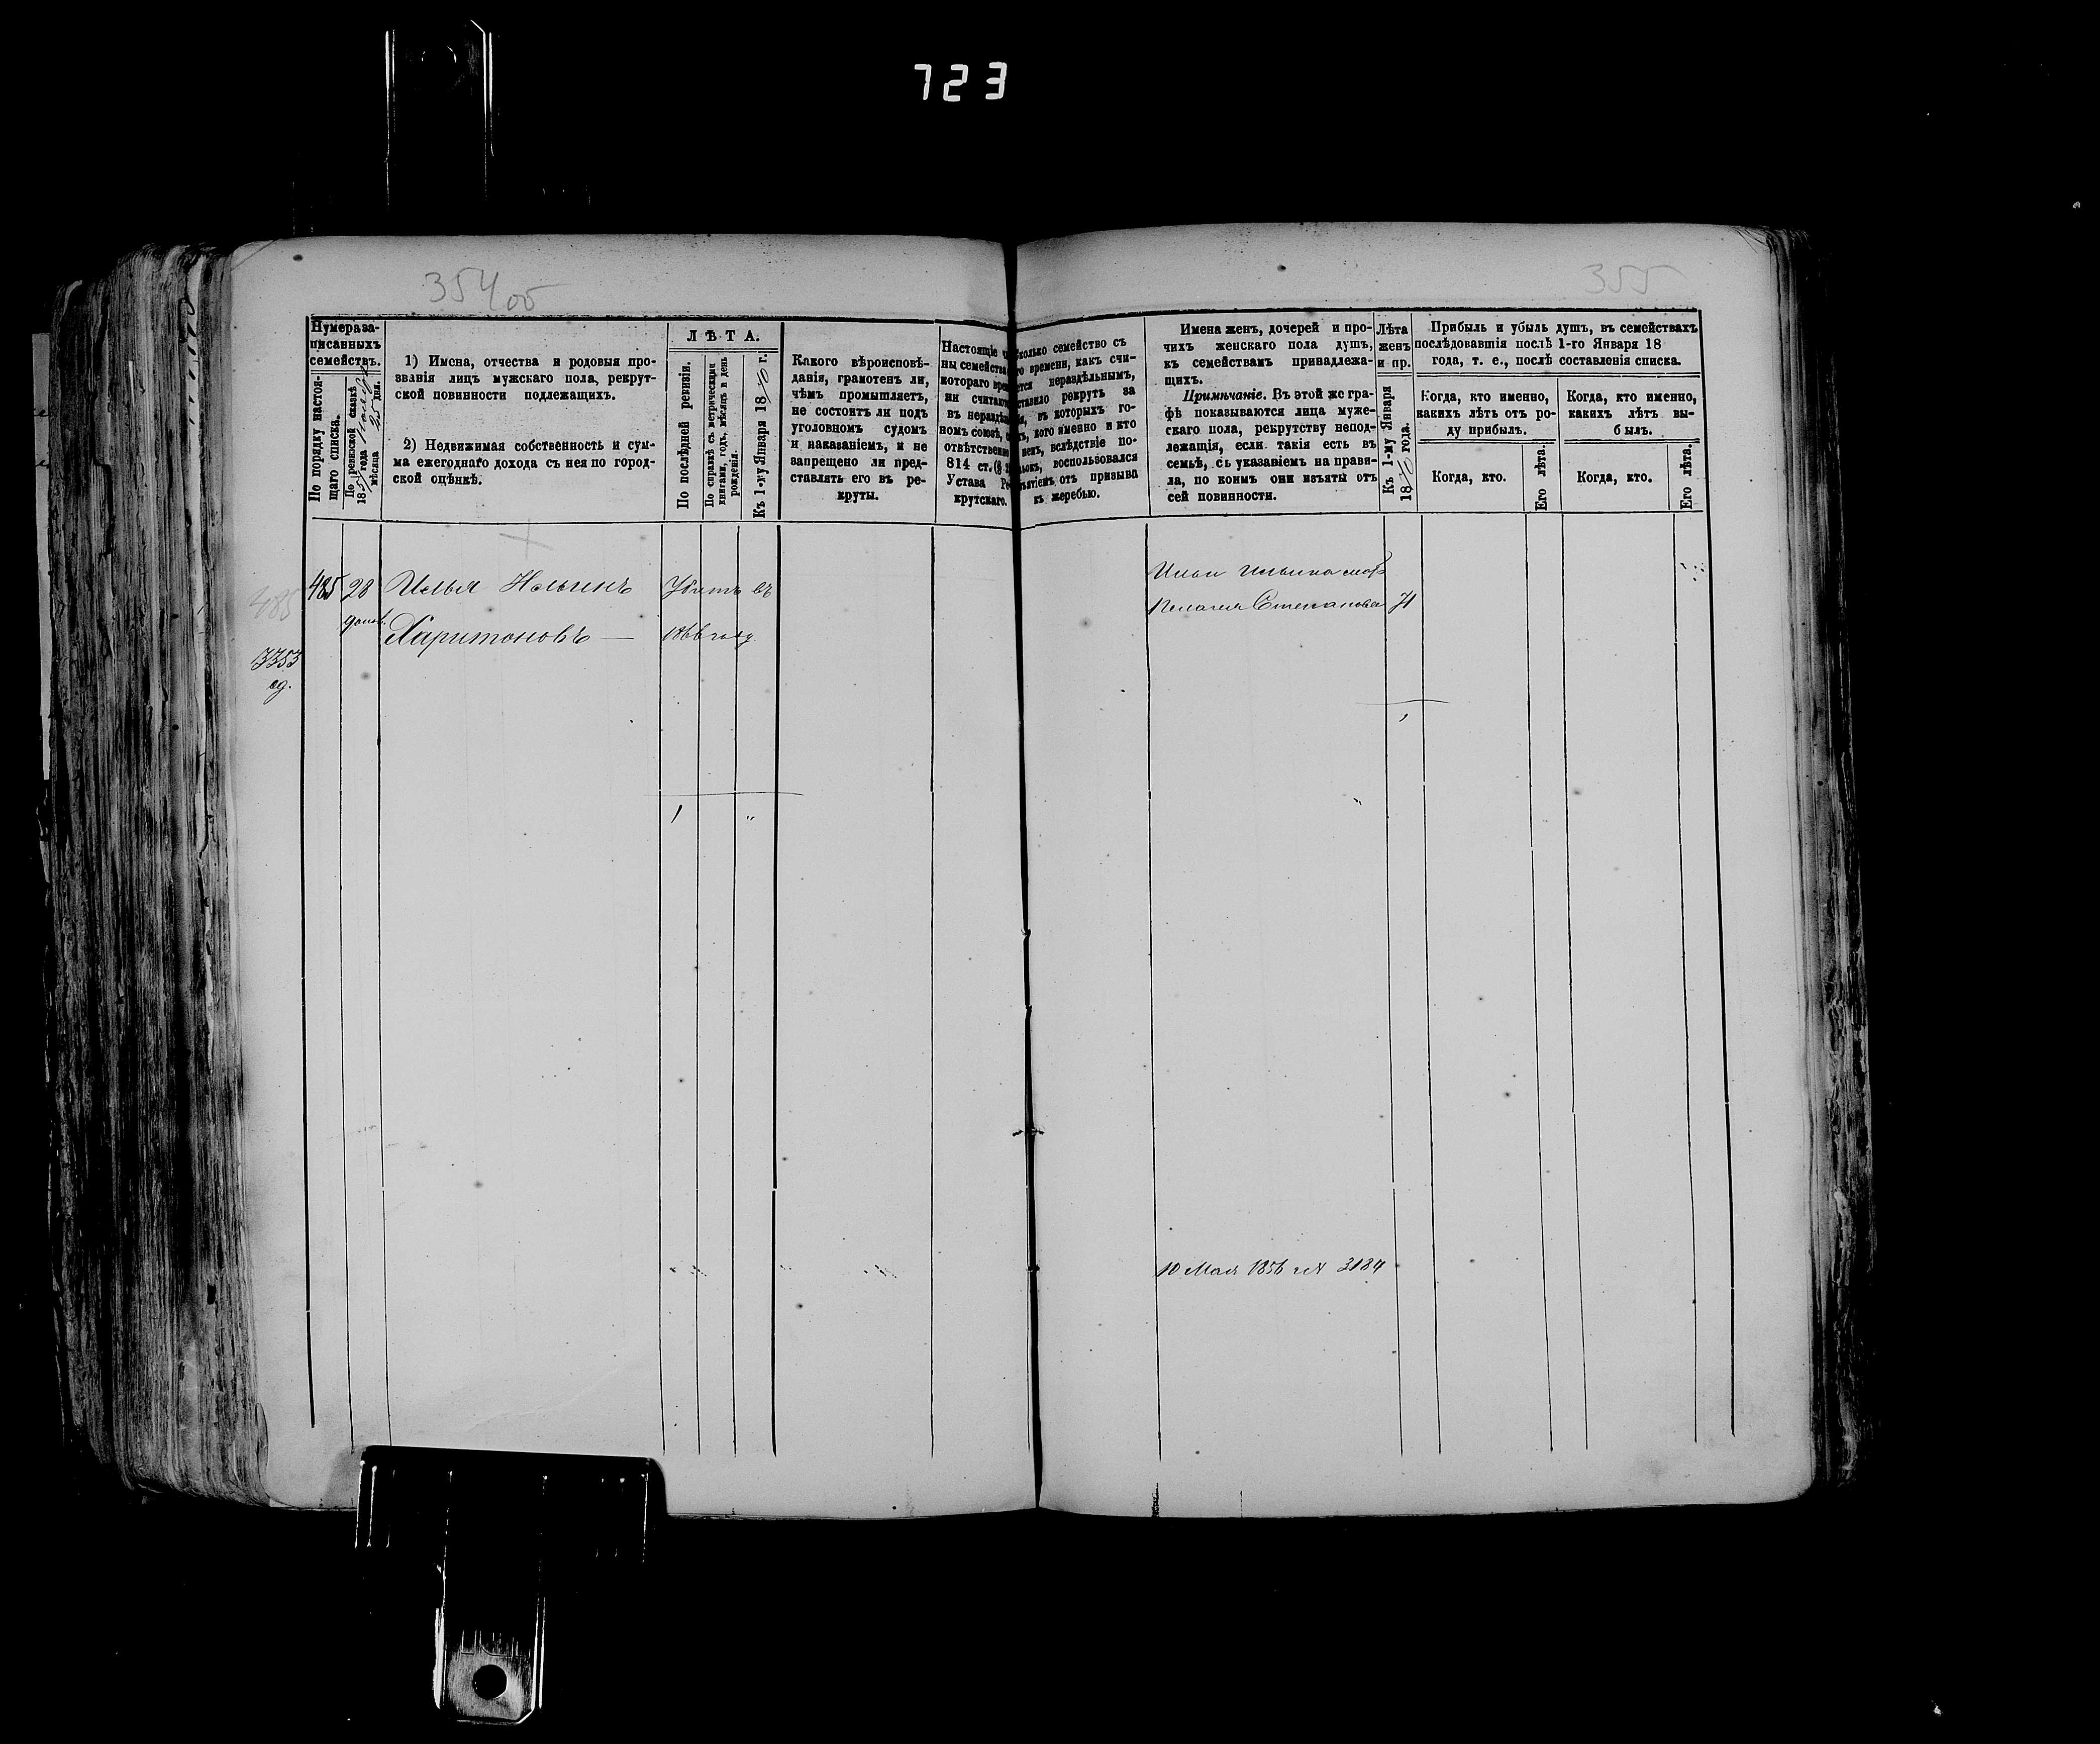 723
354 об
355
Нумера за-
писанныхъ
семействъ.
По порядку настоя-
щаго списка.
По ревизской сказкѣ
185 года
мѣсяца 25 дня.
1) Имена, отчества и родовыя про-
званія лицъ мужскаго пола, рекрут-
ской повинности подлежащихъ.
2) Недвижимая собственность и сум-
ма ежегоднаго дохода съ нея по город-
ской оцѣнкѣ.
ЛѢТА.
По послѣдней ревизіи.
По справкѣ съ метрическими
книгами, годъ, мѣсяцъ и день
рожденія.
Къ 1-му Января 1870 г.
Какого вѣроисповѣ-
данія, грамотенъ ли,
чѣмъ промышляетъ,
не состоитъ ли подъ
уголовномъ судомъ
и наказаніемъ, и не
запрещено ли пред-
ставлять его въ ре-
круты.
Настоящіе
ны семейства
котораго вре
ни считаю
въ нераздѣ
номъ союзѣ,
отвѣтственно
814 ст.
Устава Ре
крутскаго.
колько семейство съ
го времени, какъ счи-
ется нераздѣльнымъ,
ставило рекрутъ за
въ которыхъ го-
кого именно и кто
вслѣдствіе по-
воспользовался
ъятіемъ отъ призыва
къ жеребью.
Имена женъ, дочерей и про-
чихъ женскаго пола душъ,
къ семействамъ принадлежа-
щихъ.
Примѣчаніе. Въ этой же гра-
фѣ показываются лица муже-
скаго пола, рекрутству непод-
лежащія, если такія есть въ
семьѣ, съ указаніемъ на прави-
ла, по коимъ они изъяты отъ
сей повинности.
Лѣта
женъ
и пр.
Къ 1-му Января
1870 года.
Прибыль и убыль душъ, въ семействахъ
послѣдовавшія послѣ 1-го Января 18
года, т. е., послѣ составленія списка.
Когда, кто именно,
какихъ лѣтъ отъ ро-
ду прибылъ.
Когда, кто.
Его лѣта.
Когда, кто именно,
какихъ лѣтъ вы-
былъ.
Когда, кто.
Его лѣта.
485
485 28 Илья Ильинъ
Харитоновъ —
3353
ед.
Убитъ въ
1866 году
1 "
Ильи Ильина
Пелагея Степанова 71
1
10 Мая 1856 г № 3184